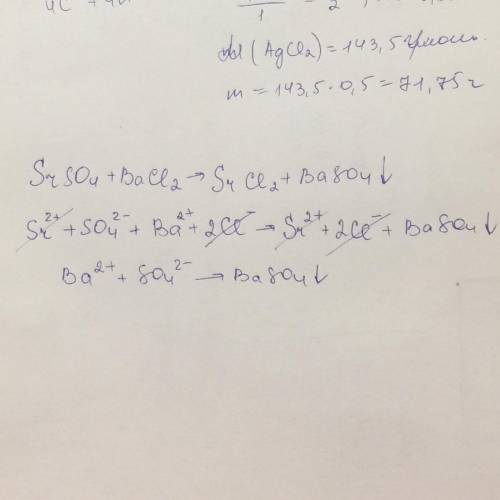 1 = 2
M (AgCl₂) = 143,5 г/моль
m = 143,5 · 0,5 = 71,75 г
SrSO₄ + BaCl₂ → SrCl₂ + BaSO₄↓
Sr²⁺ + SO₄²⁻ + Ba²⁺ + 2Cl⁻ → Sr²⁺ + 2Cl⁻ + BaSO₄↓
Ba²⁺ + SO₄²⁻ → BaSO₄↓